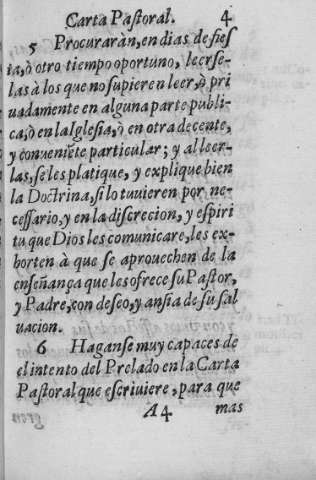 Carta Pastoral. 4
5 Procuraràn, en dias de fies
ta, ò otro tiempo oportuno, leerse-
las à los que no supieren leer, ò pri
uadamente en alguna parte publi-
ca, ò en la Iglesia, ò en otra decente,
y conueniẽte particular; y al leer-
las, se les platique, y explique bien
la Doctrina, si lo tuuieren por ne-
cessario, y en la discrecion, y espiri
tu que Dios les comunicare, les ex-
horten à que se aprouechen de la
enseñança que les ofrece su Pastor,
y Padre, con deseo, y ansia de su sal
uacion.
6 Haganse muy capaces de
el intento del Prelado en la Carta
Pastoral que escriuiere, para que
A4 mas